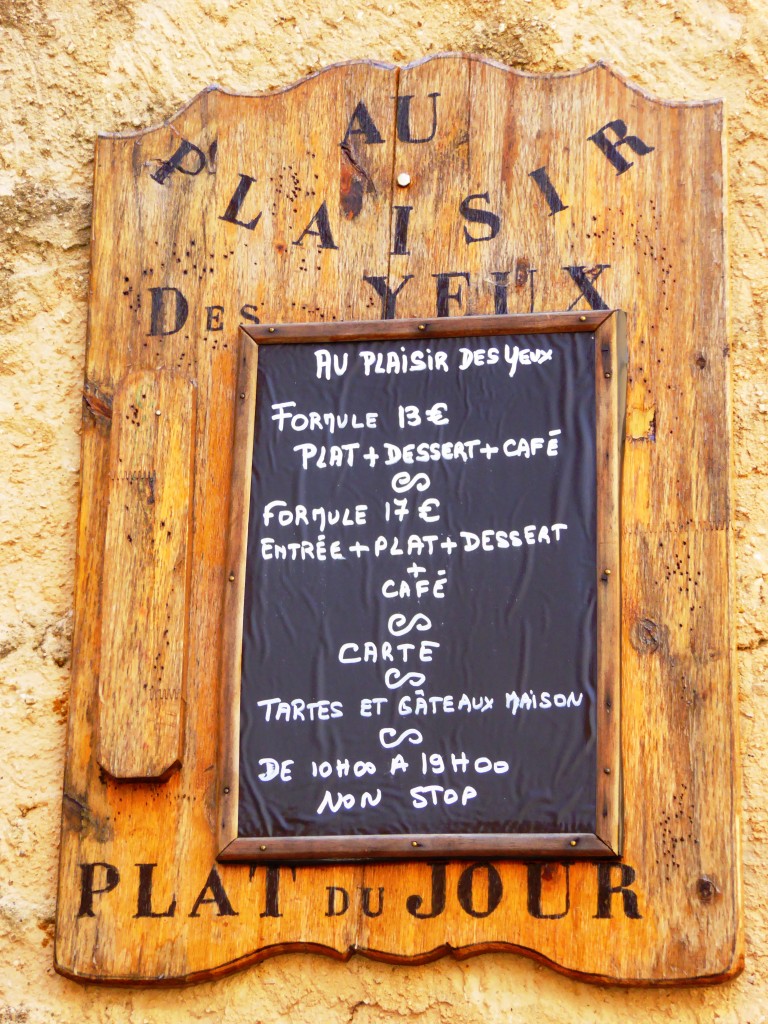 AU
PLAISIR
DES YEUX
AU PLAISIR DES YEUX
FORMULE 13€
PLAT+DESSERT+CAFÉ
FORMULE 17€
ENTRÉE+PLAT+DESSERT
+
CAFÉ
CARTE
TARTES ET GÂTEAUX MAISON
DE 10H00 A 19H00
NON STOP
PLAT DU JOUR